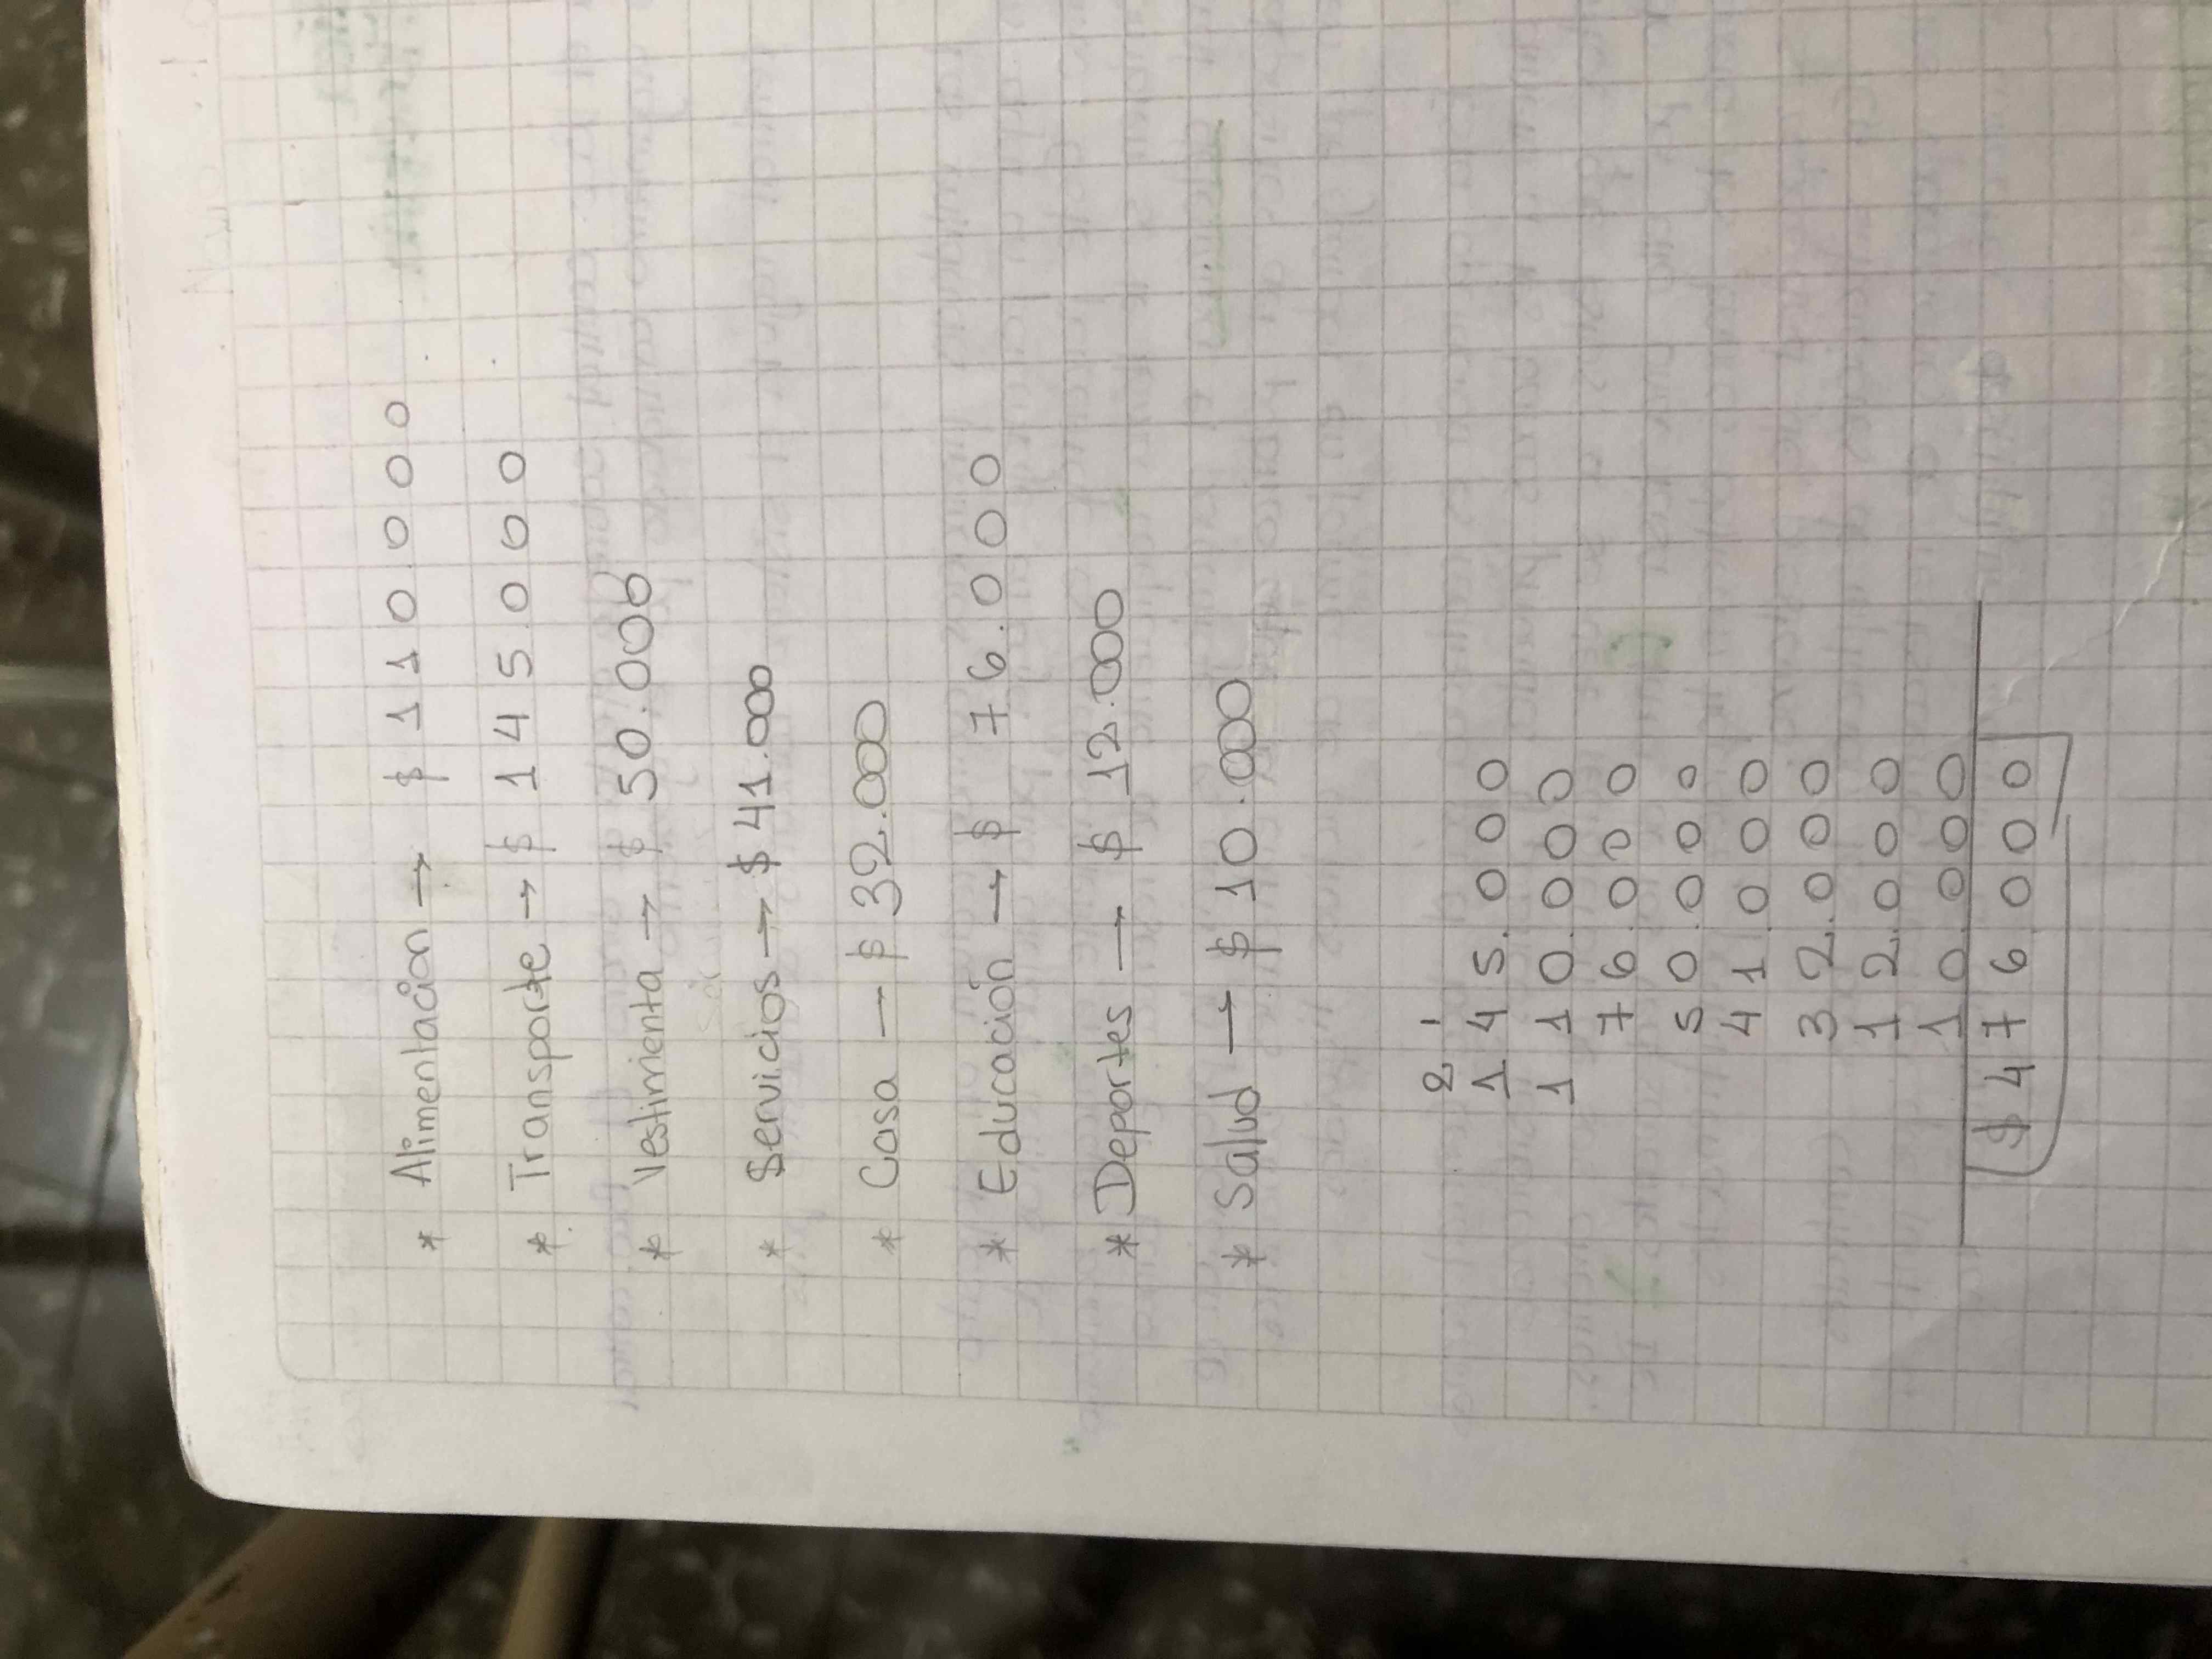 * Alimentación → $ 110.000
* Transporte → $ 145.000
* Vestimienta → $ 50.000
* Servicios → $ 41.000
* Casa → $ 32.000
* Educación → $ 76.000
* Deportes → $ 12.000
* Salud → $ 10.000
2 1
145.000
110.000
76.000
50.000
41.000
32.000
12.000
10.000
$ 476.000